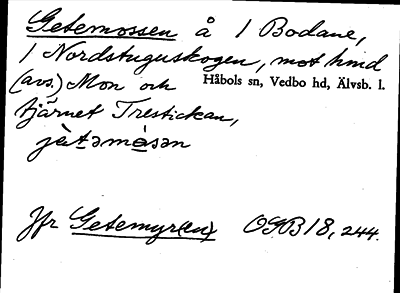 Getemossen å 1 Bodane,
1 Nordstuguskogen, mot hmd
(avs.) Mon och Håbols sn, Vedbo hd, Älvsb. l.
tjärnet Trestickan,
jètəmòsən
Jfr Getemyr(en) OGB 18, 244.